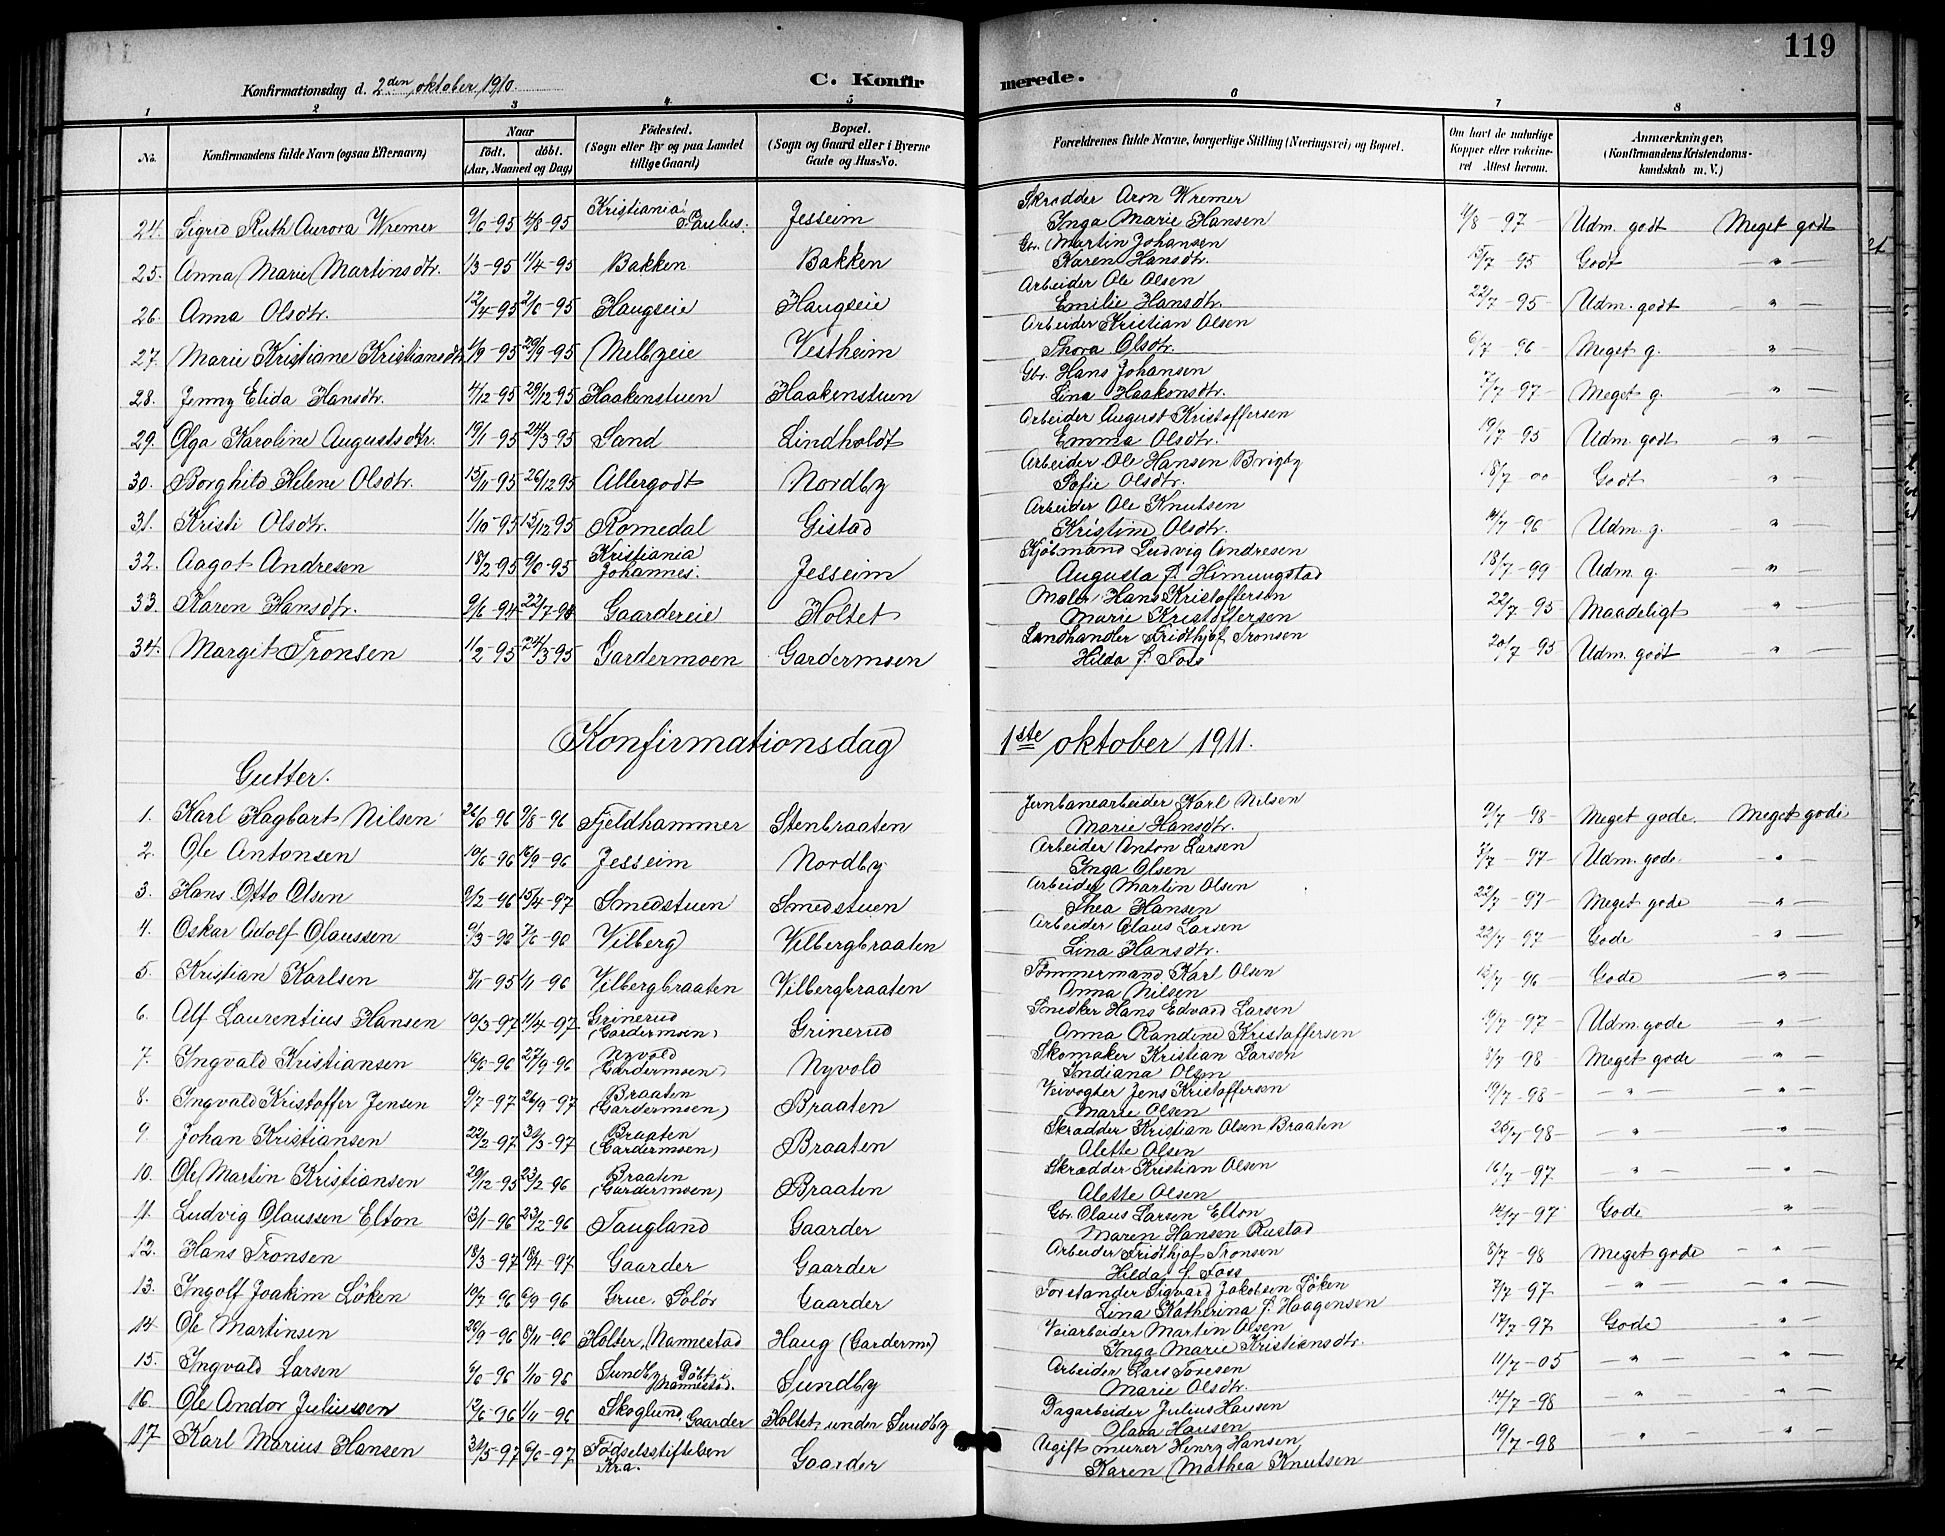 119
Konfirmationsdag d. 2den oktober 1910.
C. Konfirmerede.
1 2 3 4 5 6 7 8
No.
Konfirmandens fulde Navn (ogsaa Efternavn)
Naar
født. døbt.
(Aar, Maaned og Dag)
Fødested.
(Sogn eller By og paa Landet
tillige Gaard)
Bopæl.
(Sogn og Gaard eller i Byerne
Gade og Hus-No.
Forældrenes fulde Navne, borgerlige Stilling (Næringsvei) og Bopæl.
Om havt de naturlige
Kopper eller vakcine-
ret Attest herom.
Anmærkninger,
(Konfirmandens Kristendoms-
kundskab m. V.)
24. Sigrid Ruth Aurora Wremer 9/6-95 4/8-95 Kristiania Paulus. Jesseim Skrædder Aron Wremer
Inga Marie Hansen 4/8-97 Udm. godt Meget godt
25. Anna Marie Martinsdtr. 1/3-95 11/4-95 Bakken Bakken Gbr. Martin Johansen
Karen Hansdtr. 15/7-95 Godt — " —
26. Anna Olsdtr. 12/4-95 2/6-95 Haugseie Haugseie Arbeider Ole Olsen
Emilie Hansdtr. 22/7-95 Udm. godt — " —
27. Marie Kristiane Kristiansdtr. 1/9-95 29/9-95 Melbyeie Vestheim Arbeider Kristian Olsen
Thora Olsdtr. 6/7-96 Meget g. — " —
28. Jenny Elida Hansdtr. 4/12-95 29/12-95 Haakenstuen Haakenstuen Gbr. Hans Johansen
Lina Haakonsdtr. 7/7-97 Meget g. — " —
29. Olga Karoline Augustsdtr. 19/1-95 24/3-95 Sand Lindholdt Arbeider August Kristoffersen
Emma Olsdtr. 19/7-95 Udm. godt — " —
30. Borghild Helene Olsdtr. 15/11-95 26/12-95 Allergodt Nordby Arbeider Ole Hansen Brigby
Sofie Olsdtr. 18/7-00 Godt — " —
31. Kristi Olsdtr. 1/10-95 15/12-95 Romedal Gistad Arbeider Ole Knutsen
Kristine Olsdtr. 14/7-96 Udm. g. — " —
32. Aagot Andresen 18/2-95 9/6-95 Kristiania
Johannes. Jesseim Kjøbmand Ludvig Andresen
Augusta f. Himungstad 18/7-99 Udm. g. — " —
33. Karen Hansdtr. 9/6-94 22/7-94 Gaardereie Holtet Maler Hans Kristoffersen
Marie Kristoffersen 22/7-95 Maadeligt — " —
34. Margit Tronsen 1/2-95 24/3-95 Gardermoen Gardermoen Landhandler Fridthjof Tronsen
Hilda f. Foss 20/7-95 Udm. godt — " —
Konfirmationsdag 1ste oktober 1911.
Gutter.
1. Karl Hagbart Nilsen 26/6-96 9/8-96 Fjeldhammer Stenbraaten Jernbanearbeider Karl Nilsen
Marie Hansdtr. 9/7-98 Meget gode. Meget gode
2. Ole Antonsen 10/6-96 16/9-96 Jesseim Nordby Arbeider Anton Larsen
Inga Olsen 7/7-97 Udm. gode. — " —
3. Hans Otto Olsen 9/12-96 15/4-97 Smedstuen Smedstuen Arbeider Martin Olsen
Thea Hansen 22/7-97 Meget gode — " —
4. Oskar Adolf Olaussen 9/3-96 7/6-96 Vilberg Vilbergbraaten Arbeider Olaus Larsen
Lina Hansdtr. 22/7-97 Gode — " —
5. Kristian Karlsen 8/11-95 1/1-96 Vilbergbraaten Vilbergbraaten Tømmermand Karl Olsen
Anna Nilsen 13/7-96 Gode — " —
6. Alf Laurentius Hansen 10/3-97 11/4-97 Grinerud
(Gardermoen) Grinerud Snedker Hans Edvard Larsen
Anna Randine Kristoffersen 19/7-97 Udm. gode — " —
7. Ingvald Kristiansen 16/6-96 27/9-96 Nyvold
(Gardermoen) Nyvold Skomaker Kristian Larsen
Indiana Olsen 8/7-98 Meget gode — " —
8. Ingvald Kristoffer Jensen 9/7-97 26/9-97 Braaten
(Gardermoen) Braaten Veivogter Jens Kristoffersen
Marie Olsen 19/7-98 — " — — " —
9. Johan Kristiansen 22/2-97 30/3-97 Braaten
(Gardermoen) Braaten Skrædder Kristian Olsen Braaten
Alette Olsen 26/7-98 — " — — " —
10. Ole Martin Kristiansen 20/12-95 23/2-96 Braaten
(Gardermoen) Braaten Skrædder Kristian Olsen
Alette Olsen 16/7-97 — " — — " —
11. Ludvig Olaussen Elton 13/1-96 23/2-96 Taugland Gaarder Gbr. Olaus Larsen Elton
Maren Hansen Rustad 14/7-97 Gode "
12. Hans Tronsen 18/3-97 18/4-97 Gaarder Gaarder Arbeider Fridthjof Tronsen
Hilda f. Foss 8/7-98 Meget gode — " —
13. Ingolf Joakim Løken 10/7-96 6/9-96 Grue. Solør Gaarder Forstander Sigvard Jakobsen Løken
Lina Katherina f. Haagensen 7/7-97 — " — — " —
14. Ole Martinsen 20/9-96 8/11-96 Holter, Nannestad Haug (Garderm.) Veiarbeider Martin Olsen
Inga Marie Kristiansdtr. 17/7-97 Gode — " —
15. Ingvald Larsen 6/6-96 1/10-96 Sundby. Døbt i
Nannestad. Sundby Arbeider Lars Toresen
Marie Olsdtr. 11/7-05 — " — — " —
16. Ole Andor Juliussen 12/6-96 1/11-96 Skoglund, Gaarder Holtet under Sundby Dagarbeider Julius Hansen
Olava Hansen 14/7-98 — " — — " —
17 Karl Marius Hansen 31/5-97 6/6-97 Fødselsstiftelsen
Kra. Gaarder Ugift murer Henry Hansen
Karen Mathea Knutsen 19/7-98 " — — " —